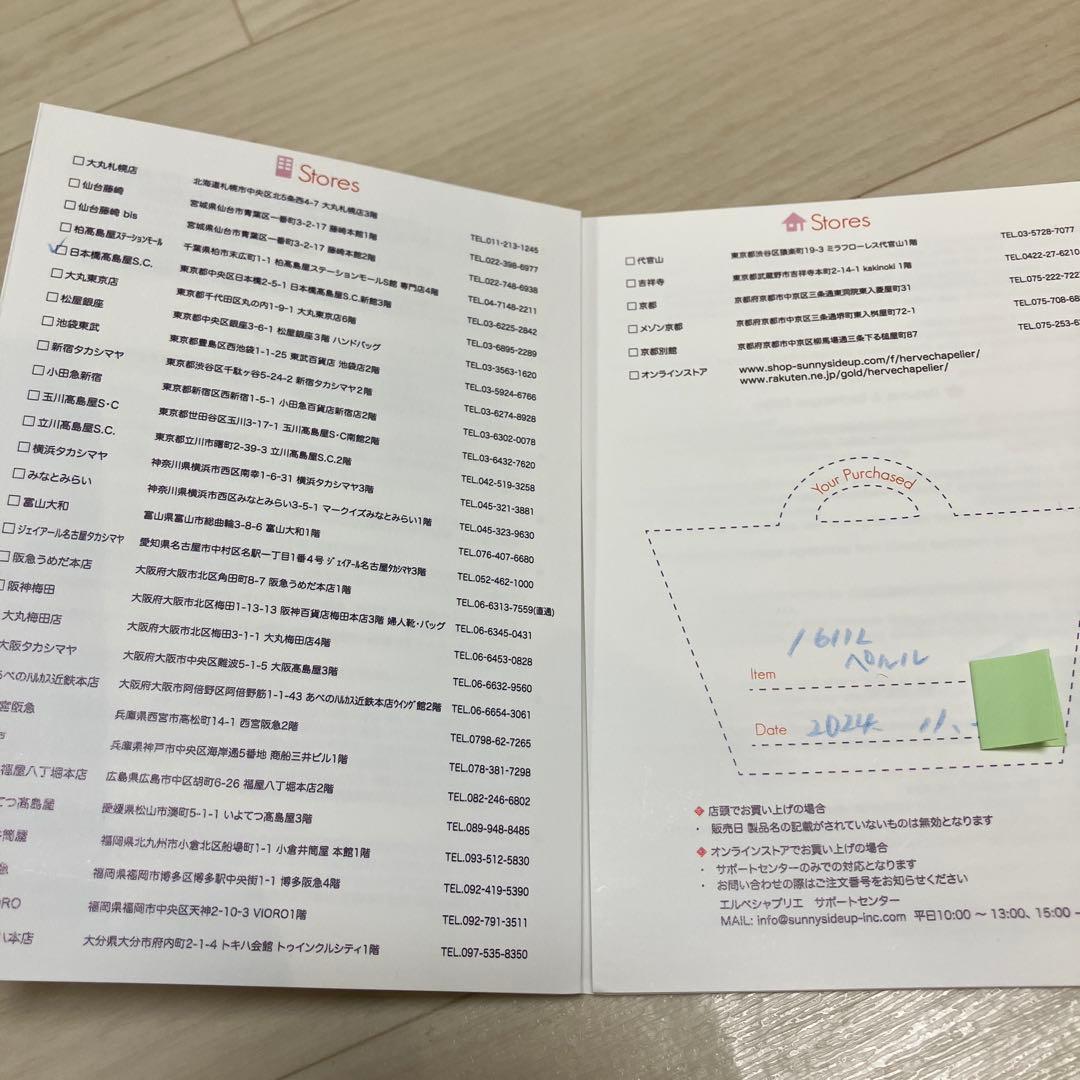 Stores
大丸札幌店 北海道札幌市中央区北5条西4-7 大丸札幌店3階 TEL.011-213-1245
仙台藤崎 宮城県仙台市青葉区一番町3-2-17 藤崎本館1階 TEL.022-398-6977
仙台藤崎 bis 宮城県仙台市青葉区一番町3-2-17 藤崎本館2階 TEL.022-748-6938
柏髙島屋ステーションモール 千葉県柏市末広町1-1 柏髙島屋ステーションモールS館 専門店4階 TEL.04-7148-2211
日本橋髙島屋S.C. 東京都中央区日本橋2-5-1 日本橋髙島屋S.C.新館3階 TEL.03-6225-2842
大丸東京店 東京都千代田区丸の内1-9-1 大丸東京店6階 TEL.03-6895-2289
松屋銀座 東京都中央区銀座3-6-1 松屋銀座3階 ハンドバッグ TEL.03-3563-1620
池袋東武 東京都豊島区西池袋1-1-25 東武百貨店 池袋店2階 TEL.03-5924-6766
新宿タカシマヤ 東京都渋谷区千駄ヶ谷5-24-2 新宿タカシマヤ2階 TEL.03-6274-8928
小田急新宿 東京都新宿区西新宿1-5-1 小田急百貨店新宿店2階 TEL.03-6302-0078
玉川髙島屋S・C 東京都世田谷区玉川3-17-1 玉川髙島屋S・C南館2階 TEL.03-6432-7620
立川髙島屋S.C. 東京都立川市曙町2-39-3 立川髙島屋S.C.2階 TEL.042-519-3258
横浜タカシマヤ 神奈川県横浜市西区南幸1-6-31 横浜タカシマヤ3階 TEL.045-321-3881
みなとみらい 神奈川県横浜市西区みなとみらい3-5-1 マークイズみなとみらい1階 TEL.045-323-9630
富山大和 富山県富山市総曲輪3-8-6 富山大和1階 TEL.076-407-6680
ジェイアール名古屋タカシマヤ 愛知県名古屋市中村区名駅一丁目1番4号 ジェイアール名古屋タカシマヤ3階 TEL.052-462-1000
阪急うめだ本店 大阪府大阪市北区角田町8-7 阪急うめだ本店1階 TEL.06-6313-7559(直通)
阪神梅田 大阪府大阪市北区梅田1-13-13 阪神百貨店梅田本店3階 婦人靴・バッグ TEL.06-6345-0431
大丸梅田店 大阪府大阪市北区梅田3-1-1 大丸梅田店4階 TEL.06-6453-0828
大阪タカシマヤ 大阪府大阪市中央区難波5-1-5 大阪髙島屋3階 TEL.06-6632-9560
あべのハルカス近鉄本店 大阪府大阪市阿倍野区阿倍野筋1-1-43 あべのハルカス近鉄本店ウイング館2階 TEL.06-6654-3061
宮阪急 兵庫県西宮市高松町14-1 西宮阪急2階 TEL.0798-62-7265
兵庫県神戸市中央区海岸通5番地 商船三井ビル1階 TEL.078-381-7298
福屋八丁堀本店 広島県広島市中区胡町6-26 福屋八丁堀本店2階 TEL.082-246-6802
てつ髙島屋 愛媛県松山市湊町5-1-1 いよてつ髙島屋3階 TEL.089-948-8485
筒屋 福岡県北九州市小倉北区船場町1-1 小倉井筒屋 本館1階 TEL.093-512-5830
急 福岡県福岡市博多区博多駅中央街1-1 博多阪急4階 TEL.092-419-5390
ORO 福岡県福岡市中央区天神2-10-3 VIORO1階 TEL.092-791-3511
ハ本店 大分県大分市府内町2-1-4 トキハ会館 トゥインクルシティ1階 TEL.097-535-8350
Stores
代官山 東京都渋谷区猿楽町19-3 ミラフローレス代官山1階 TEL.03-5728-7077
吉祥寺 東京都武蔵野市吉祥寺本町2-14-1 kakinoki 1階 TEL.0422-27-6210
京都 京都府京都市中京区三条通東洞院東入菱屋町31 TEL.075-222-722
メゾン京都 京都府京都市中京区三条通堺町東入桝屋町72-1 TEL.075-708-68
京都別館 京都府京都市中京区柳馬場通三条下る槌屋町87 TEL.075-253-6
オンラインストア www.shop-sunnysideup.com/f/hervechapelier/
www.rakuten.ne.jp/gold/hervechapelier/
Your Purchased
1611L
ペルル
Item
Date 2024. 11.
店頭でお買い上げの場合
・ 販売日 製品名の記載がされていないものは無効となります
オンラインストアでお買い上げの場合
・ サポートセンターのみでの対応となります
・ お問い合わせの際はご注文番号をお知らせください
エルベシャプリエ サポートセンター
MAIL: info@sunnysideup-inc.com 平日10:00 〜 13:00、15:00 −